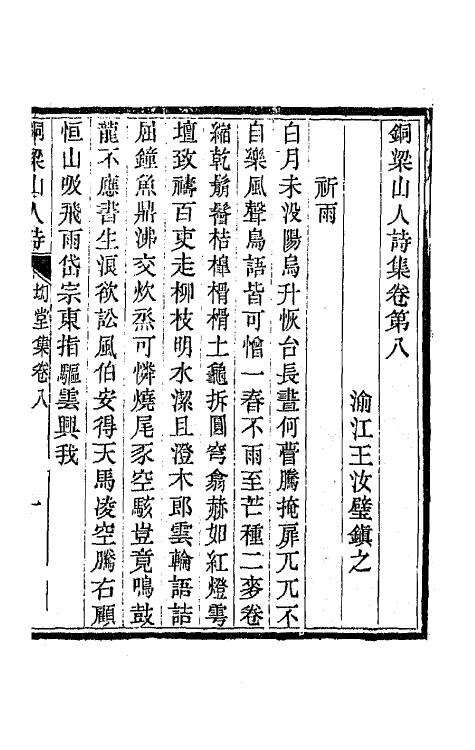 銅梁山人詩集卷第八
渝江王汝璧鎮之
祈雨
白月未没陽烏升恢台長晝何瞢騰掩扉兀兀不
自樂風聲鳥語皆可憎一春不雨至芒種二麥卷
縮乾鬅鬙桔槹榾榾土龜拆圓穹翕赫如紅燈雩
壇致禱百吏走柳枝明水潔且澄木郎雲輪語詰
屈鐘魚鼎沸交炊烝可憐燒尾豕空駭豈竟鳴鼓
龍不應書生浪欲訟風伯安得天馬凌空騰右顧
恒山吸飛雨岱宗東指驅雲興我
銅梁山人詩 坳堂集卷八 一